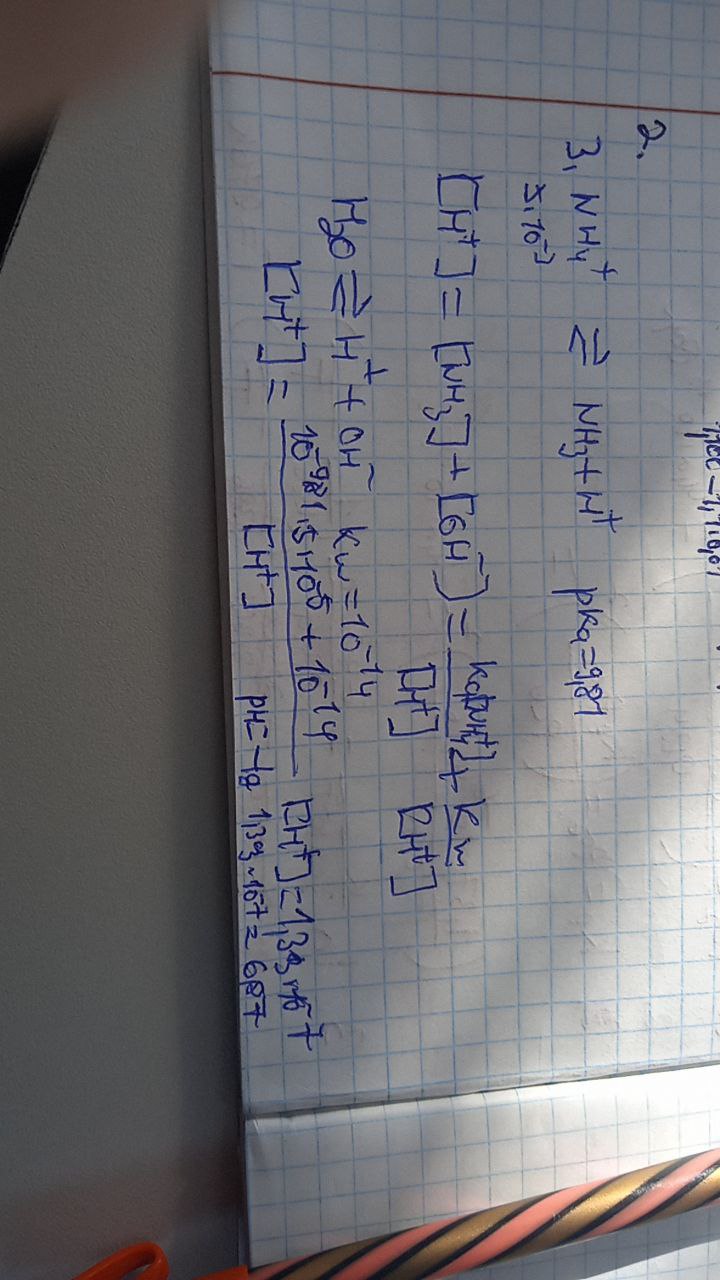 2.
3. NH₄⁺ ⇌ NH₃ + H⁺ pKa = 9,81
5·10⁻⁵
[H⁺] = [NH₃] + [OH⁻] = Ka[NH₄⁺]/[H⁺] + Kw/[H⁺]
H₂O ⇌ H⁺ + OH⁻ Kw = 10⁻¹⁴
[H⁺] = (10⁻⁹·⁸¹·5·10⁻⁵ + 10⁻¹⁴)/[H⁺] [H⁺] = 1,33·10⁻⁷
pH = -lg 1,33·10⁻⁷ = 6,87